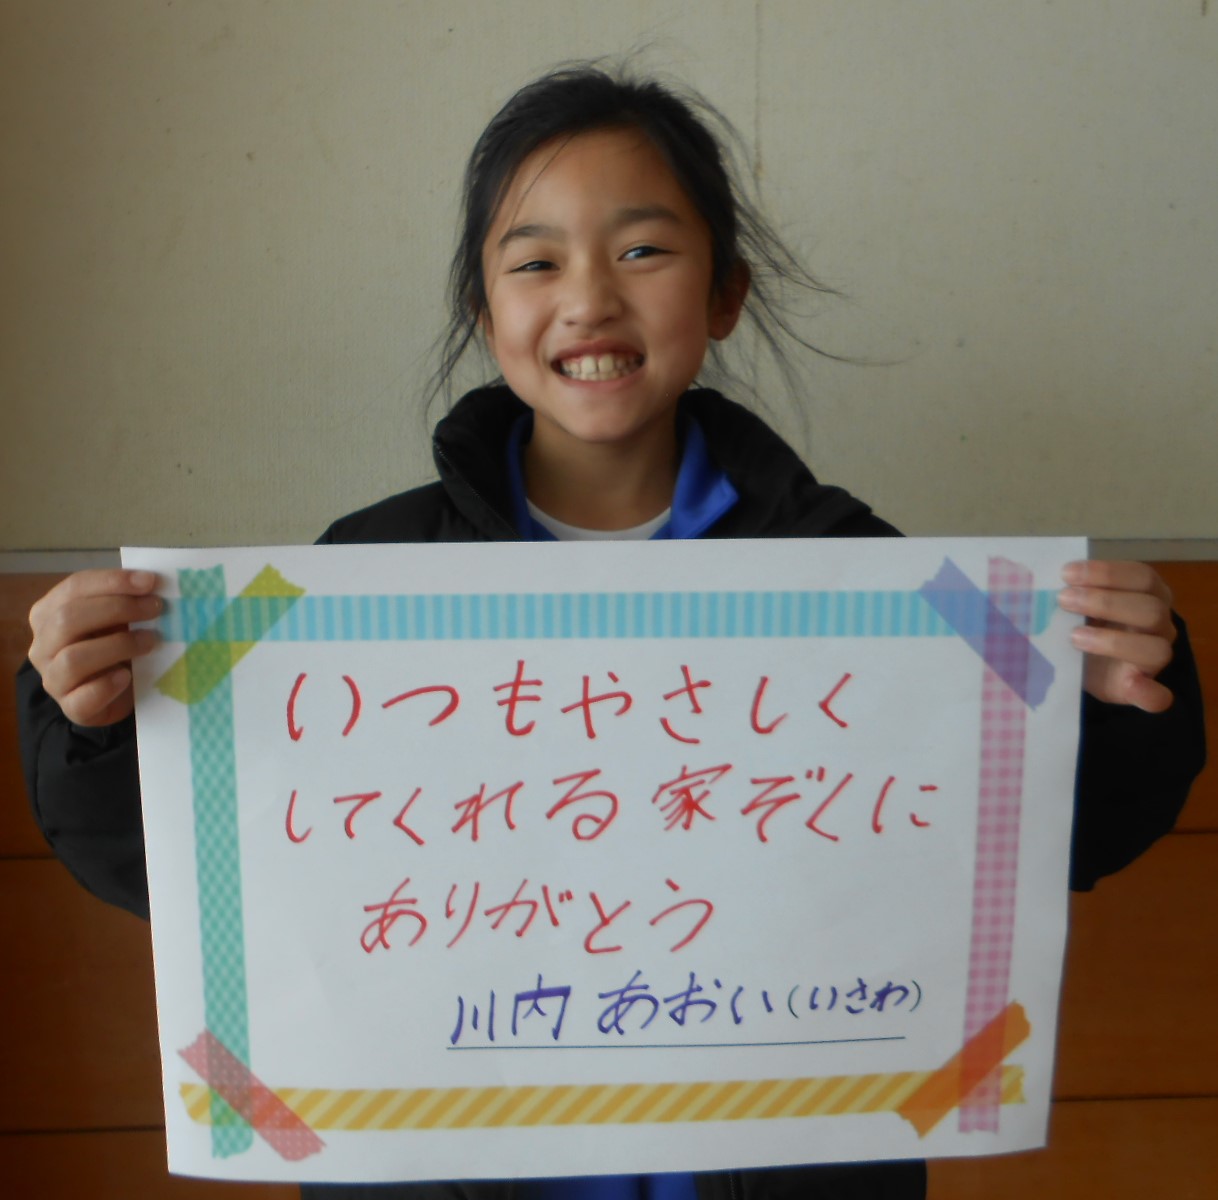 いつもやさしく
してくれる家ぞくに
ありがとう
川内 あおい(いさわ)